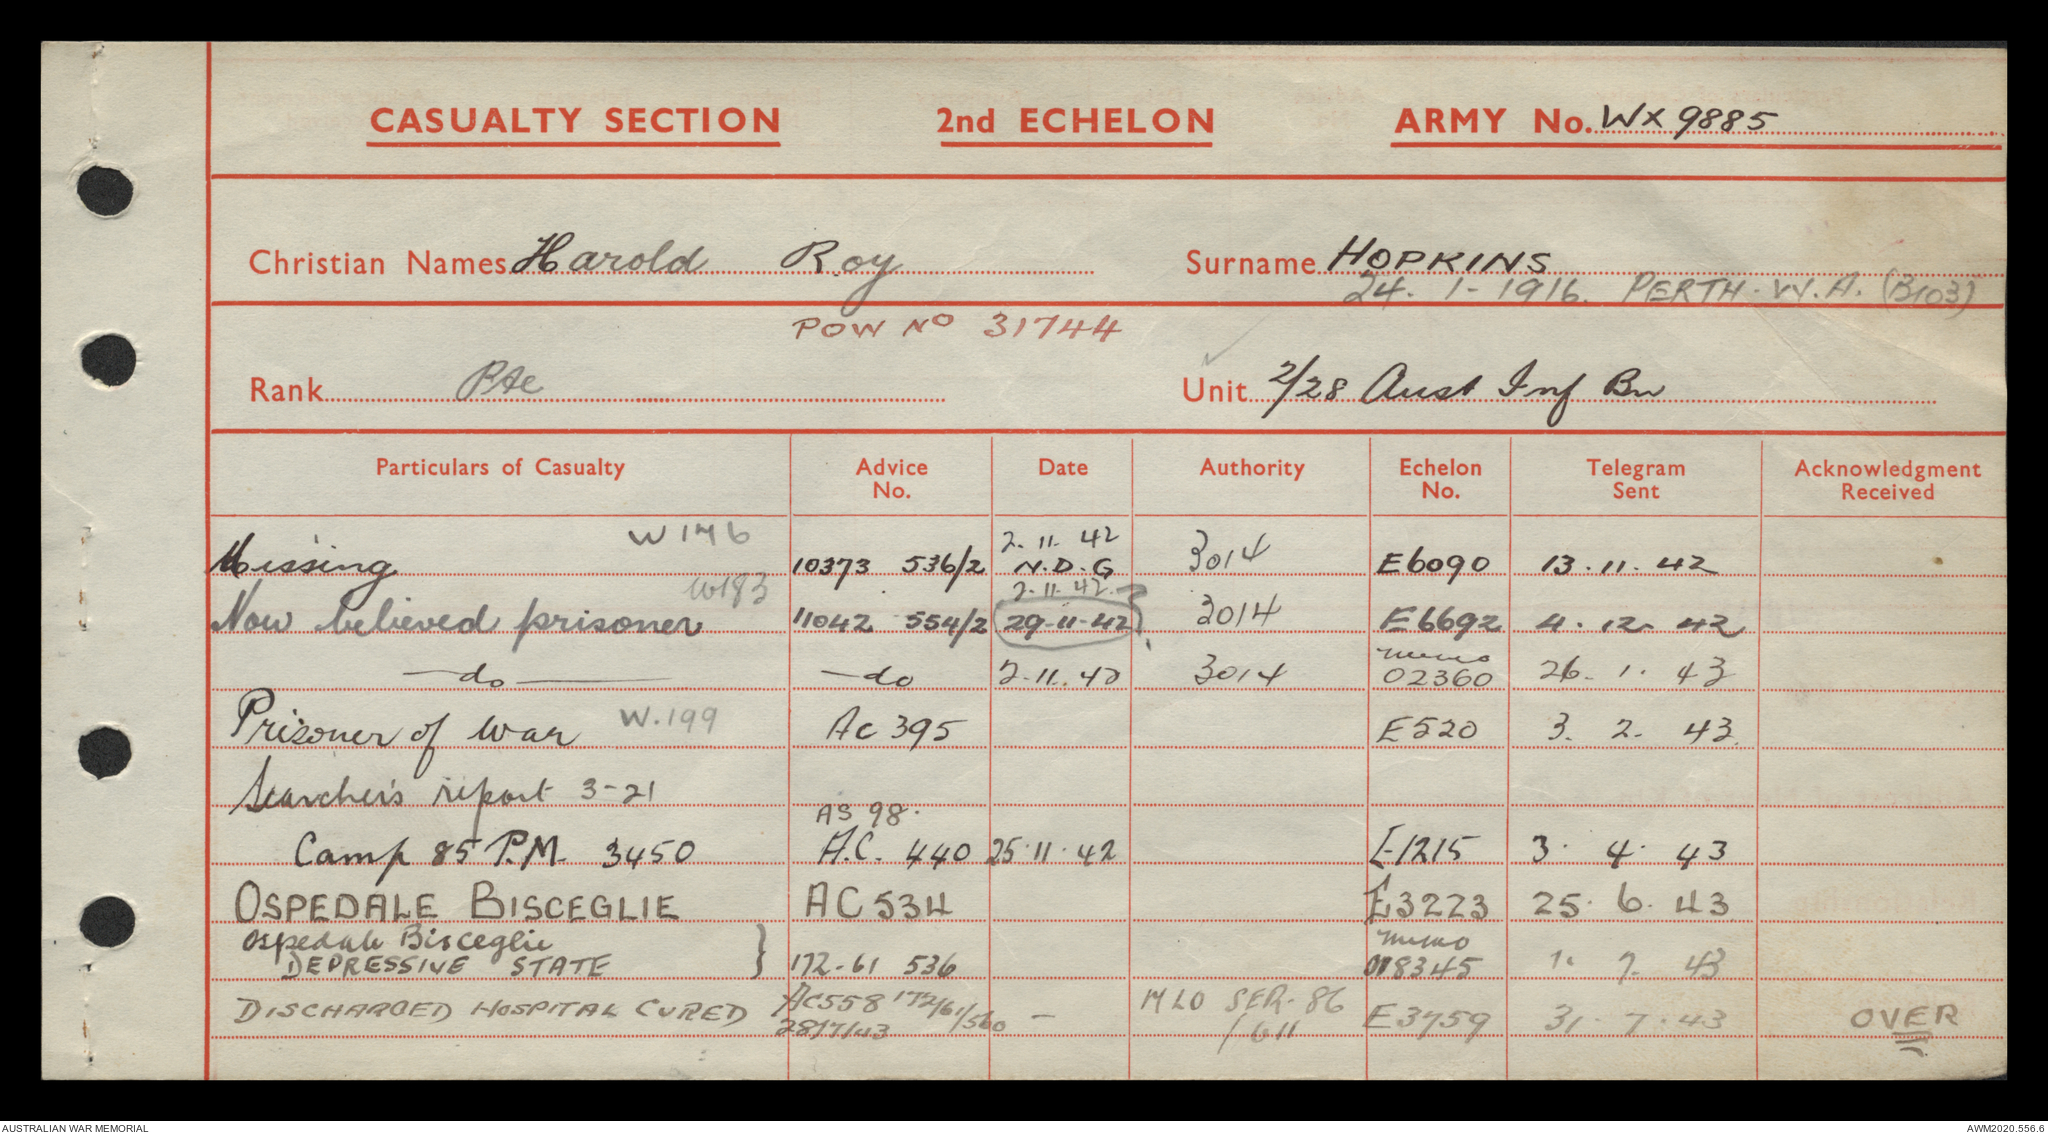 CASUALTY SECTION 2nd ECHELON ARMY No. WX 9885
Christian Names Harold Roy Surname HOPKINS
24. 1- 1916. PERTH. W.A. (B103)
POW No 31744
Rank Pte Unit 2/28 Aust Inf Bn
Particulars of Casualty Advice No. Date Authority Echelon No. Telegram Sent Acknowledgment Received
W176 2. 11. 42
Missing 10373 536/2 N.D.G 3014 E6090 13.11.42
W183 2.11.42.
Now believed prisoner 11042 554/2 29-11-42 ? 3014 E6692 4.12.42
memo
—do— —do 2.11.42 3014 02360 26. 1. 43
Prisoner of war W.199 AC 395 E520 3. 2. 43.
Searcher's report 3-21
AS 98.
Camp 85 P.M. 3450 A.C. 440 25.11.42 E1215 3. 4. 43
OSPEDALE BISCEGLIE AC 534 E3223 25. 6. 43
Ospedale Bisceglie memo
DEPRESSIVE STATE } 172-61 536 018345 1. 7. 43
DISCHARGED HOSPITAL CURED AC558 172/61/560 — MLO SER. 86 E3759 31. 7. 43 OVER
28/7/43 /611
AUSTRALIAN WAR MEMORIAL AWM2020.556.6